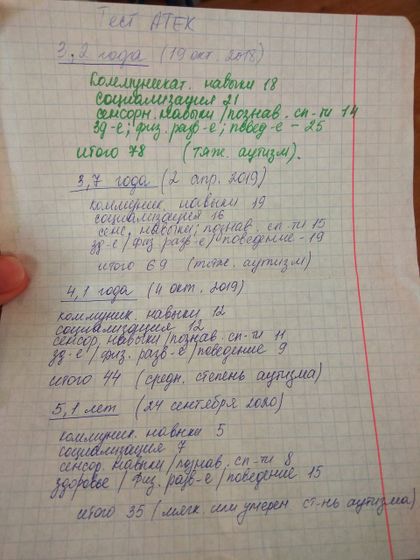 Тест АТЕК
3,2 года (19 окт. 2018)
коммуникат. навыки 18
социализация 21
сенсорн. навыки/познав. сп-ти 14
зд-е; физ. разв-е; повед-е - 25
итого 78 (тяж. аутизм).
3,7 года (2 апр. 2019)
коммуник. навыки 19
социализация 16
сенс. навыки/познав. сп-ти 15
зд-е/физ разв-е/поведение - 19
итого 69 (тяж. аутизм)
4,1 года (4 окт. 2019)
коммуник. навыки 12
социализация 12
сенсор. навыки/познав. сп-ти 11
зд-е/физ. разв-е/поведение 9
итого 44 (средн. степень аутизма)
5,1 лет (24 сентября 2020)
коммуник. навыки 5
социализация 7
сенсор. навыки/познав. сп-ти 8
здоровье/физ. разв-е/поведение 15
итого 35 (мягк. или умерен ст-нь аутизма)